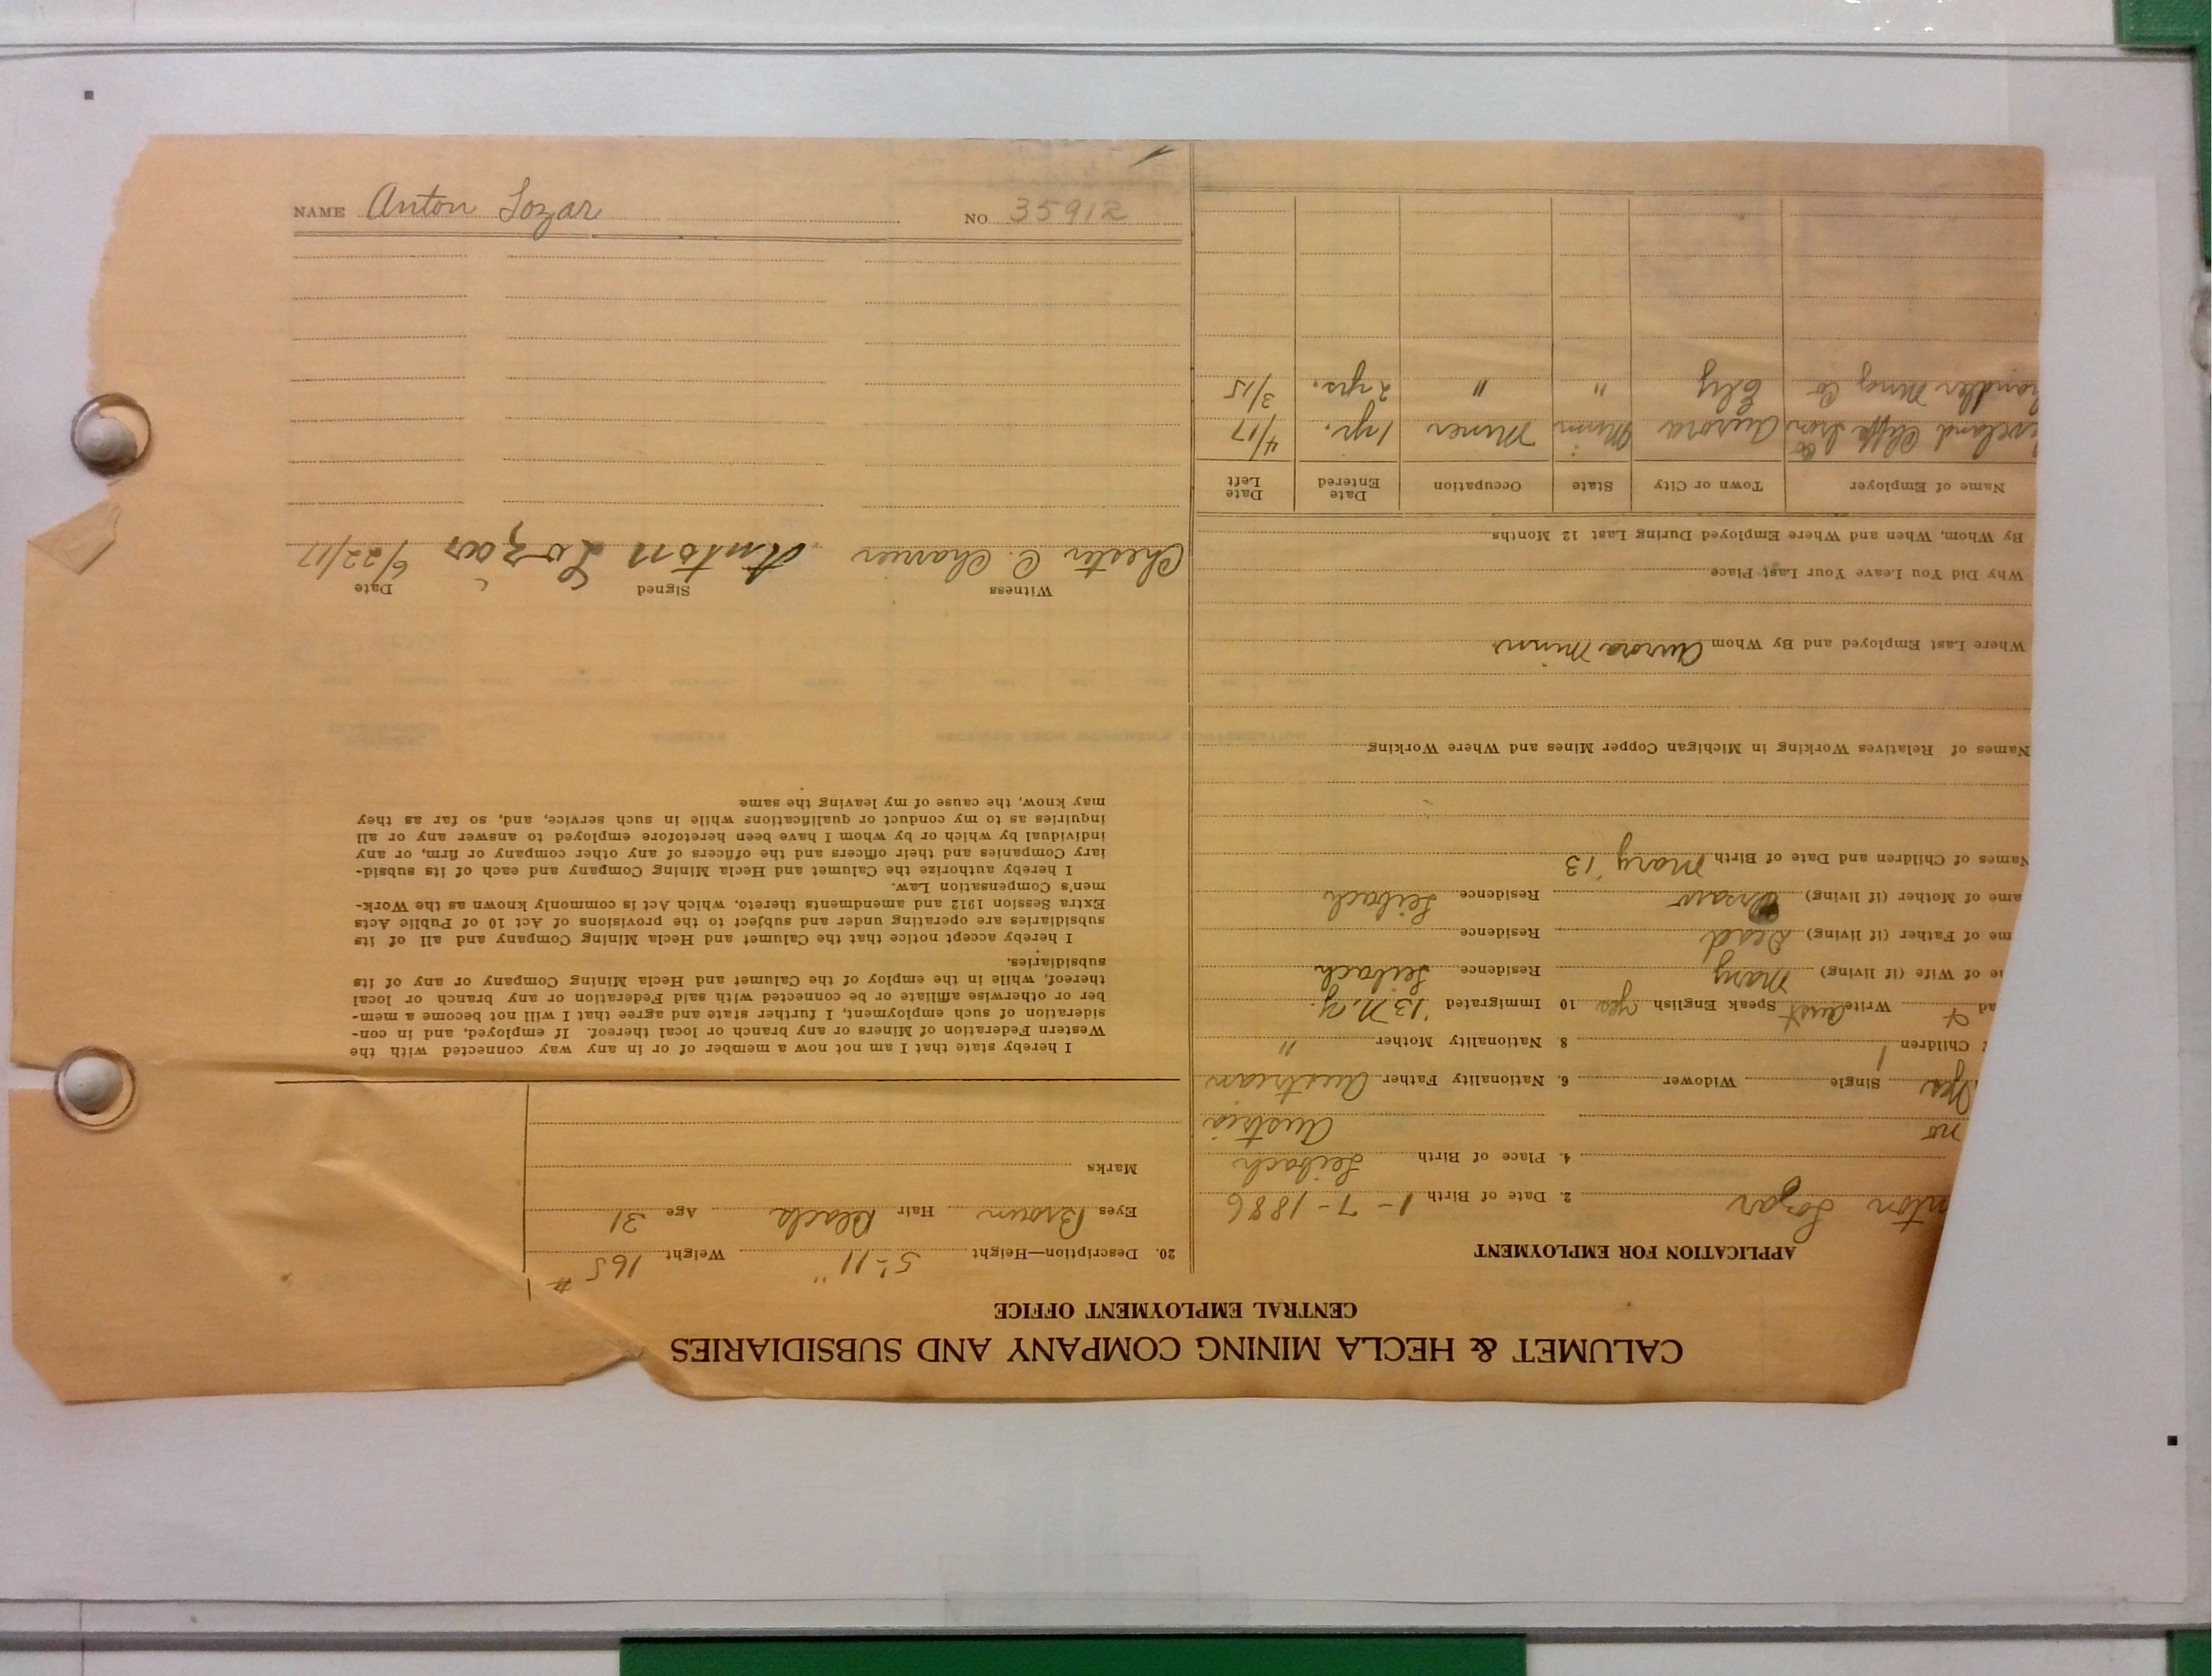 CALUMET & HECLA MINING COMPANY AND SUBSIDIARIES
CENTRAL EMPLOYMENT OFFICE
APPLICATION FOR EMPLOYMENT
nton Lozar 2. Date of Birth 1-7-1886
4. Place of Birth Leibach
no Austria
yes Single Widower 6. Nationality Father Austrian
Children 1 8. Nationality Mother "
ad Write Aust Speak English yes 10 Immigrated '13 N.Y.
e of Wife (if living) Mary Residence Leibach
me of Father (if living) Dead Residence
ame of Mother (if living) Residence Leibach
Names of Children and Date of Birth Mary '13
Names of Relatives Working in Michigan Copper Mines and Where Working
Where Last Employed and By Whom Aurora Minn
Why Did You Leave Your Last Place
By Whom, When and Where Employed During Last 12 Months
Name of Employer Town or City State Occupation Date Entered Date Left
eveland Cliffs Iron Co Aurora Minn Miner 1 yr. 4/17
handler Mng Co Ely " " 2 yrs. 3/15
20. Description—Height 5'-11" Weight 165 #
Eyes Brown Hair Black Age 31
Marks
I hereby state that I am not now a member of or in any way connected with the
Western Federation of Miners or any branch or local thereof. If employed, and in con-
sideration of such employment, I further state and agree that I will not become a mem-
ber or otherwise affiliate or be connected with said Federation or any branch or local
thereof, while in the employ of the Calumet and Hecla Mining Company or any of its
subsidiaries.
I hereby accept notice that the Calumet and Hecla Mining Company and all of its
subsidiaries are operating under and subject to the provisions of Act 10 of Public Acts
Extra Session 1912 and amendments thereto, which Act is commonly known as the Work-
men's Compensation Law.
I hereby authorize the Calumet and Hecla Mining Company and each of its subsid-
iary Companies and their officers and the officers of any other company or firm, or any
individual by which or by whom I have been heretofore employed to answer any or all
inquiries as to my conduct or qualifications while in such service, and, so far as they
may know, the cause of my leaving the same
Witness Signed Date
Chester C. Anton Lozar 6/22/17
NAME Anton Lozar NO 35912